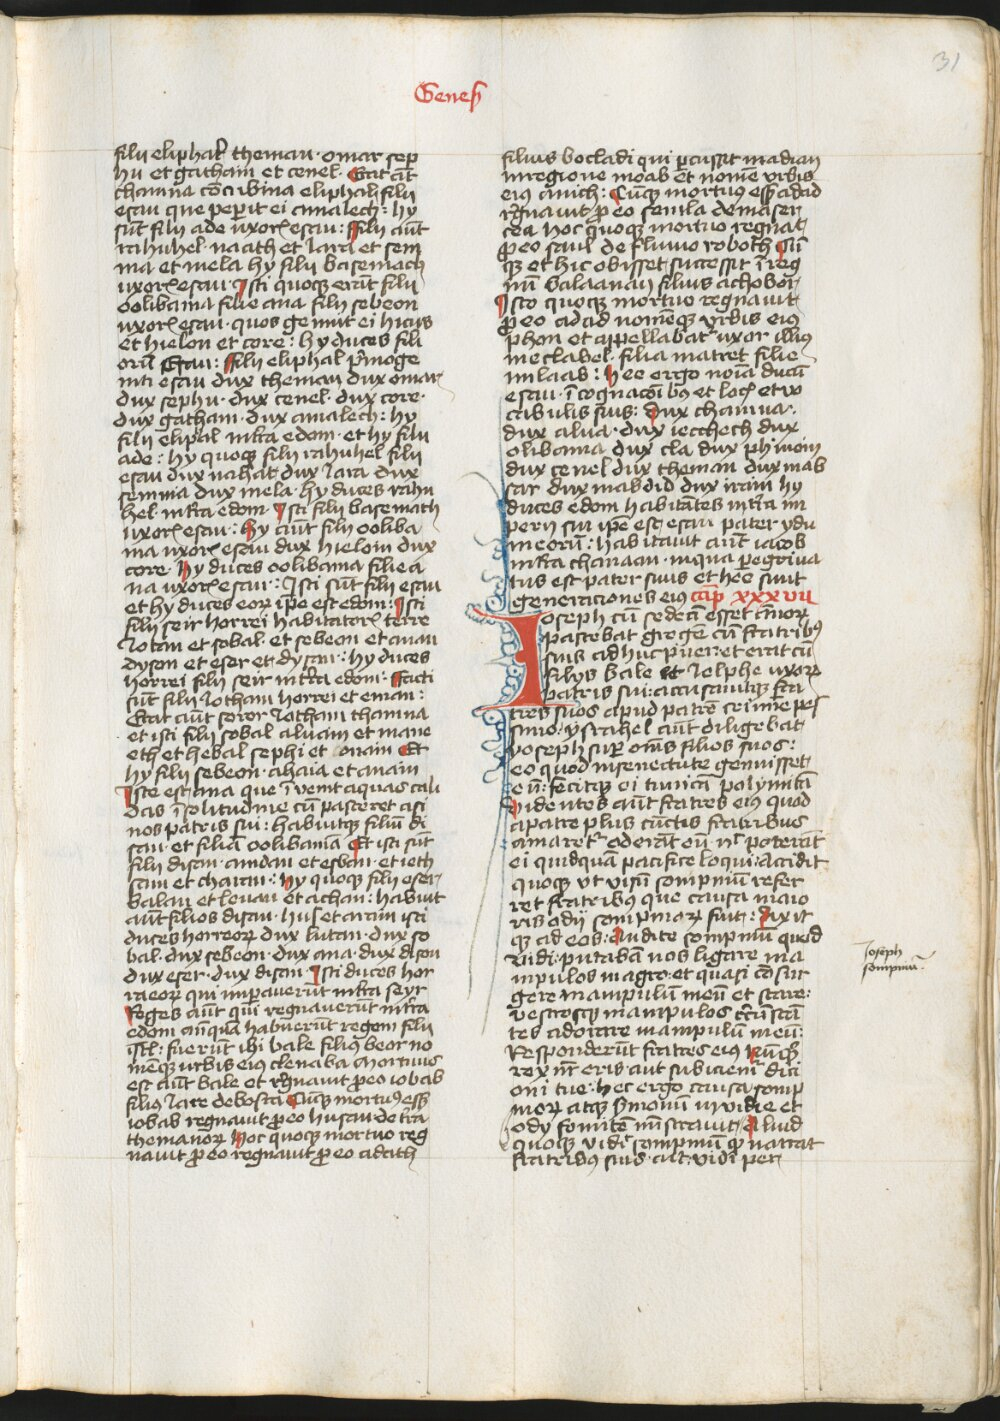 31
Genes
filii eliphat theman · omar sep
hu et gatham et cenel · Erat aut
thamna concubina eliphath filii
esau que peperit ei amalech : hy
sūt filii ade uxor esau : ffilii aūt
rahuhel · naath et Iara et sem
ma et mela hy filii basemach
uxor esau Isti quoqꝫ erāt filii
oolibama filie ana filij sebeon
uxor esau · quos genuit ei hieus
et hielon et core : hy duces fili
orū Esau : ffilii eliphal p̄moge
niti esau dux theman dux omar
dux sephu · dux cenel · dux core ·
dux gatham · dux amalech : hy
filii elipal in t̄ra edom · et hy filii
ade : hy quoqꝫ filii rahuhel filii
esau dux nahat dux Iara dux
semma dux mela · hy duces rahu
hel · in t̄ra edom · Isti filii basemath
uxor esau : Hy aūt filii ooliba
ma uxor esau dux hielom dux
core · hy duces oolibama filie a
na uxor esau : Isti sūt filii esau
et hy duces eor ip̄e est edom : Isti
filii seir horrei habitator terre
Lotan et sobal · et sebeon et anan
dyson et eser et dysan : hy duces
horrei filii seir in t̄ra edom · ffacti
sūt filii Lotham horrei et eman :
Erat aūt soror Lotham thamna
et isti filij sobal aluam et mane
eth et hebal sephi et onam Et
hy filii sebeon · ahaia et anam
Iste est ana que īvenit aquas cali
das ī solitudine cū pasceret asi
nos patris sui : habuitqꝫ filiū di
san · et filiā oolibama Et isti sūt
filii disan · amdan et esban · et ieth
ram et charan : hy quoqꝫ filii eser
balan et leuan et achan : habuit
aūt filios disan · hus et aram isti
duces horreor dux lutan · dux so
bal · dux sebeon · dux ana · dux dison
dux eser · dux disan · Isti duces hor
raeor qui imperauerūt in t̄ra seyr
Reges aūt qui regnauerūt in t̄ra
edom anquā habuerūt regem filii
isrl : fuerūt ibi bale filiꝰ beor no
menqꝫ urbis eiꝰ denaba Mortuus
est aūt bale et regnauit p̄ eo iobab
filiꝰ Iare de bosra Cūqꝫ mortuꝰ esset
iobab regnauit p̄ eo husan de t̄ra
themanor Hoc quoqꝫ mortuo reg
nauit p̄ eo regnauit p̄ eo adath
filius bocladi qui percussit madian
in regione moab et nomē urbis
eiꝰ auich : Cūqꝫ mortuꝰ esset adad
regnauit p̄ eo semla de maser
cea hoc quoqꝫ mortuo regnat
p̄ eo saul de fluuio roboth Cū
qꝫ et hic obisset successit ī reg
nū balaanan filius achobor
Isto quoqꝫ mortuo regnauit
p̄ eo adad nomēqꝫ urbis eiꝰ
phou et appellabatur uxor illiꝰ
mectabel · filia matret filie
imlaab : hee ergo noīa ducū
esau · ī cognaconibꝰ et locꝭ et vo
cabulis suis : dux thamna ·
dux alua · dux iecchech dux
olibama dux ela dux phinom
dux cenel dux theman dux mab
sar dux mabdid dux iram hy
duces edom habitātes in t̄ra im
perij sui ip̄e est esau pater ydu
meorū : habitauit aūt iacob
in t̄ra chanaan · in qua peregrina
tus est pater suus et hee sunt
generaciones eiꝰ cap xxxvii
Ioseph cū sedecī esset annor
pascebat gregē cū fratribꝰ
suis ad huc puer : et erat cū
filijs bale et Ielphe uxor
patris sui : accusauitqꝫ fra
tres suos apud patrē crimine pes
simo · ysrahel aūt diligebat
yoseph super om̄s filios suos :
eo quod in senectute genuisset
eū : fecitqꝫ ei tunicā polymitā
Videntes aūt fratres eiꝰ quod
a patre plus cūctis fratribus
amaretur oderāt eū · nec poterāt
ei quidquā pacifice loqui : Accidit
quoqꝫ ut visū sompniū refer
ret fratribꝰ que causa maio
ris odij sompnior fuit : dixit
qꝫ ad eos : Audite sompniū quod
vidi : putabā nos ligare ma
nipulos in agro : et quasi consur
gere manipulū meū et stare :
vestrosqꝫ manipulos circūstā
tes adorare manipulū meū :
Responderūt fratres eiꝰ nūqꝫ
rex nr̄ eris aut subiciemr dici
oni tue : hec ergo causa somp
nior atqꝫ sermonū invidie et
odij fomitē mīstrauit · Aliud
quoqꝫ vidit sompniū qꝫ narrat
fratribꝰ suis · ait · vidi per
Joseph
sompnia